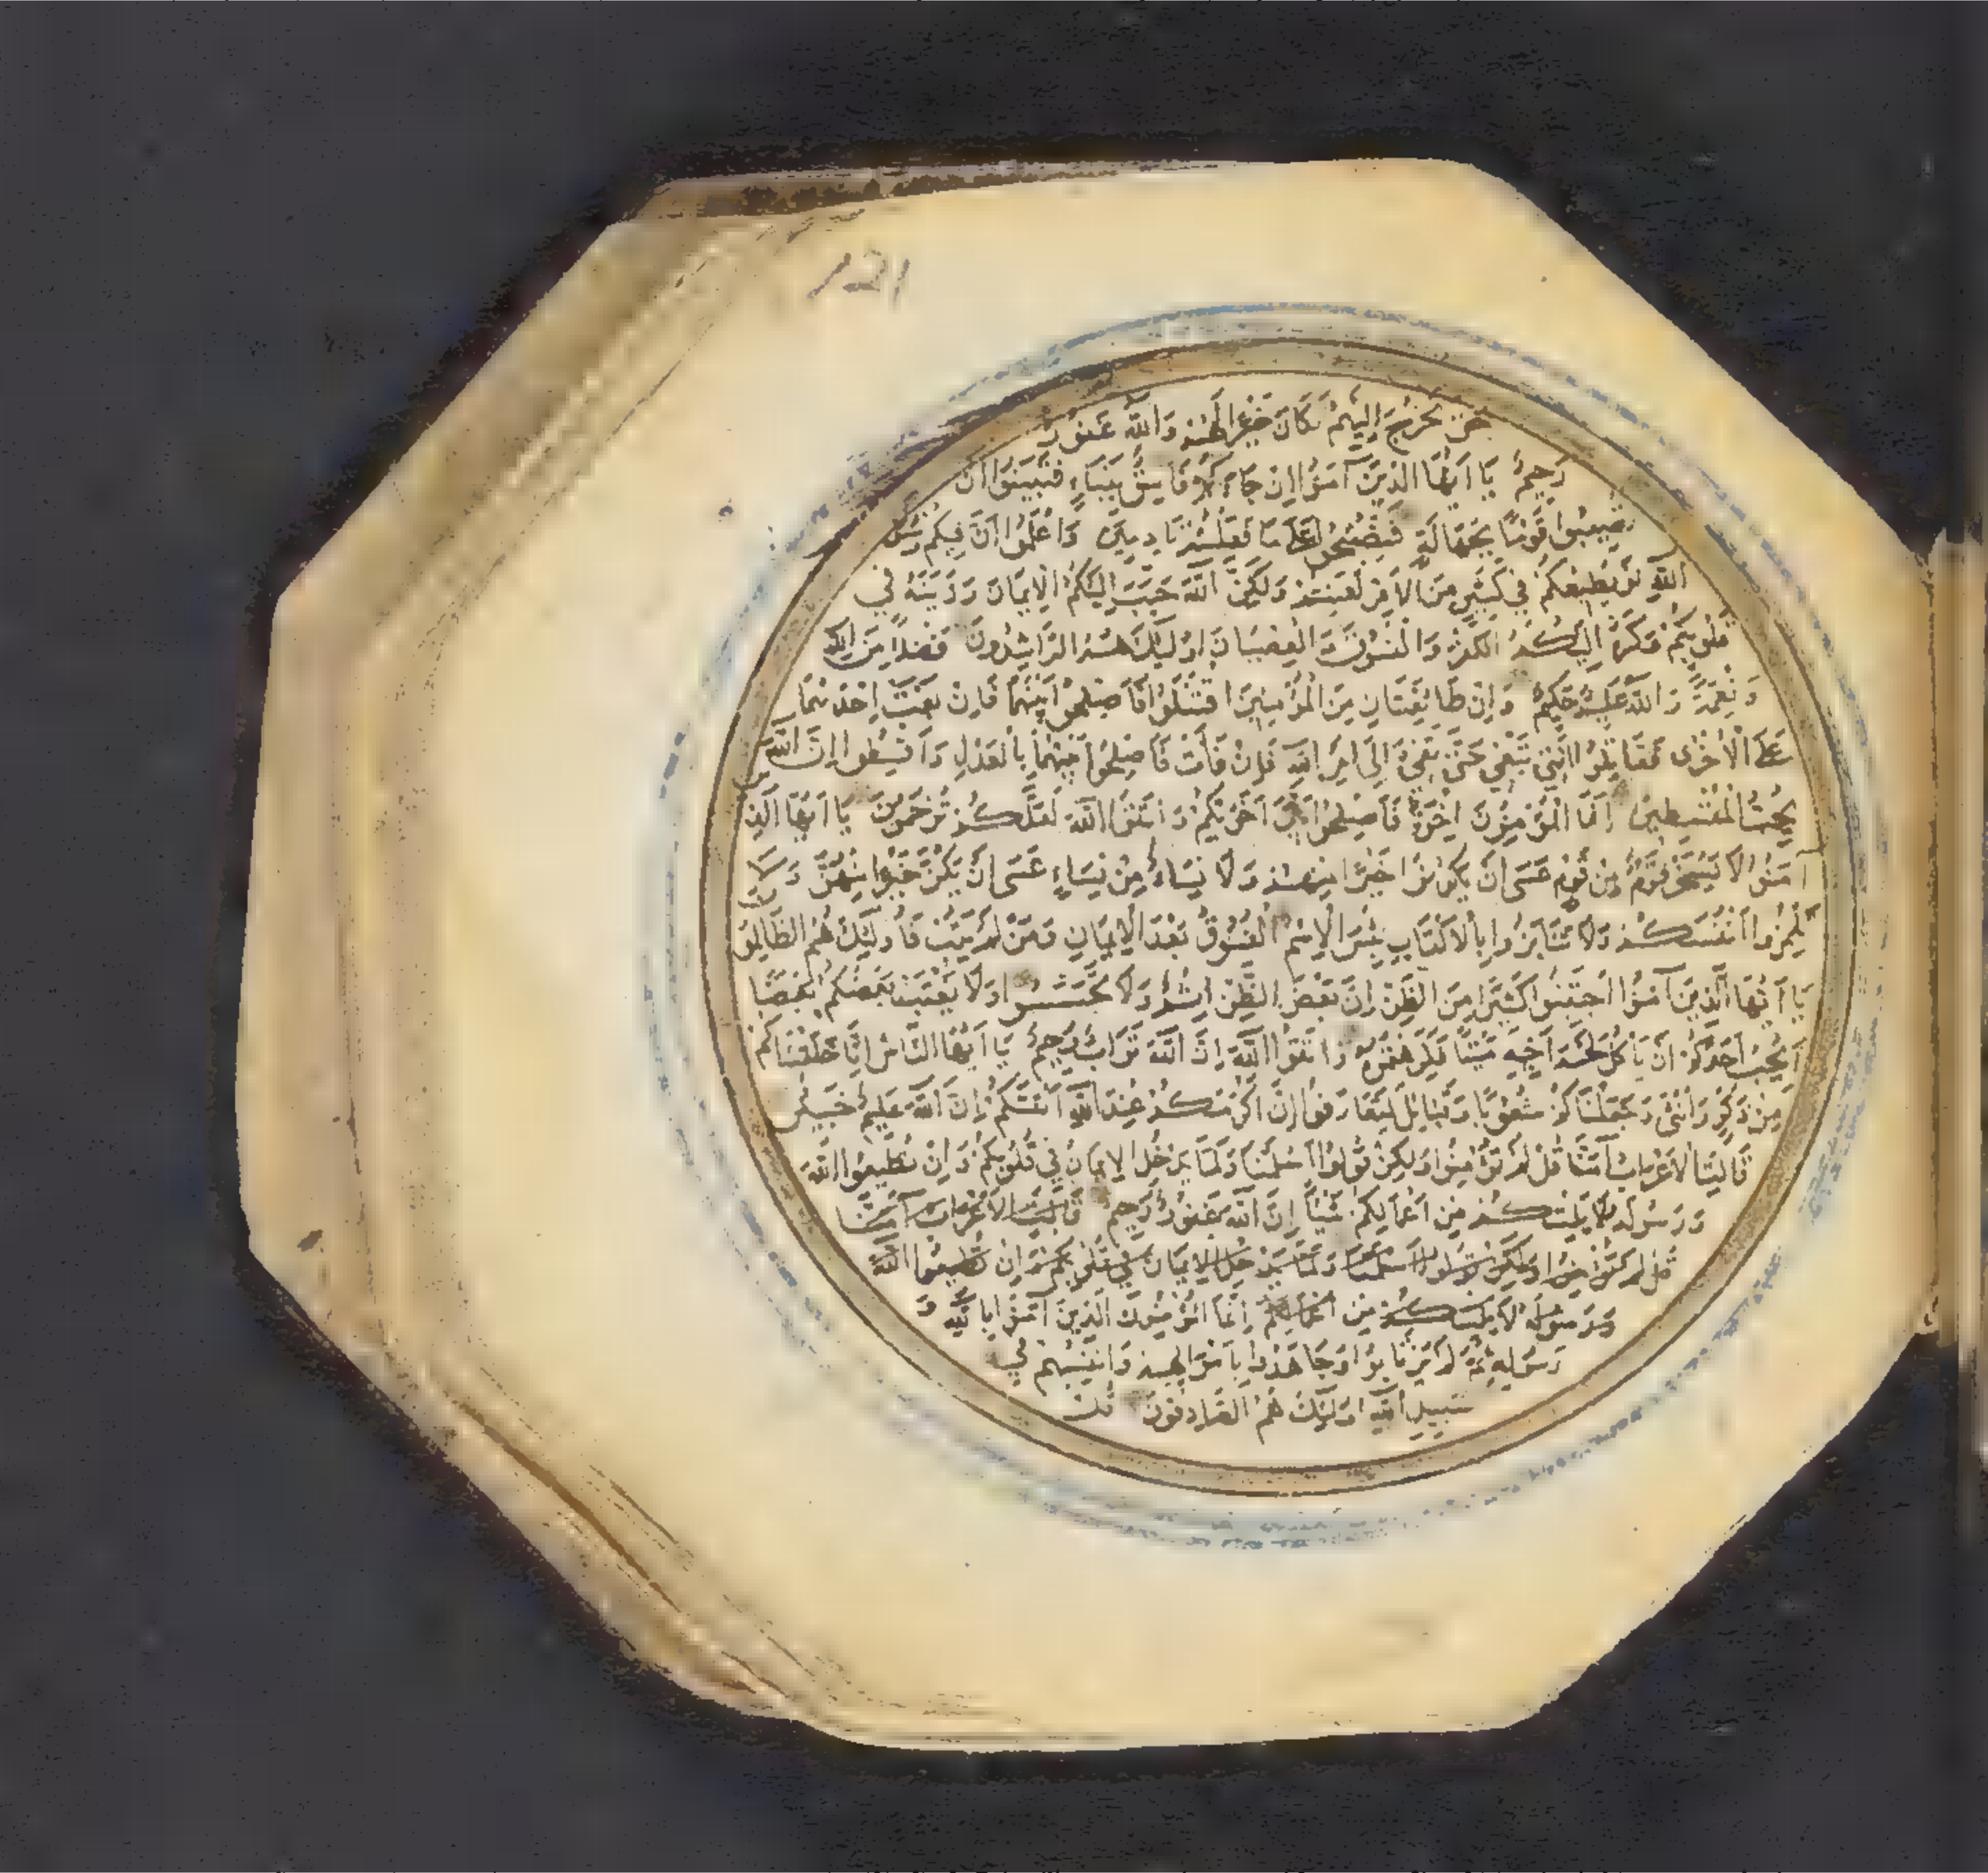 121
حتى تخرج اليهم لكان خيرا لهم والله غفور
رحيم يا ايها الذين آمنوا ان جاءكم فاسق بنباء فتبينوا ان
تصيبوا قوما بجهالة فتصبحوا على ما فعلتم نادمين واعلموا ان فيكم رسول
الله لو يطيعكم في كثير من الامر لعنتم ولكن الله حبب اليكم الايمان وزينه في
قلوبكم وكره اليكم الكفر والفسوق والعصيان اولئك هم الراشدون فضلا من الله
ونعمة والله عليم حكيم وان طائفتان من المؤمنين اقتتلوا فاصلحوا بينهما فان بغت احديهما
على الاخرى فقاتلوا التي تبغي حتى تفيء الى امر الله فان فاءت فاصلحوا بينهما بالعدل واقسطوا ان الله
يحب المقسطين انما المؤمنون اخوة فاصلحوا بين اخويكم واتقوا الله لعلكم ترحمون يا ايها الذين
آمنوا لا يسخر قوم من قوم عسى ان يكونوا خيرا منهم ولا نساء من نساء عسى ان يكن خيرا منهن ولا
تلمزوا انفسكم ولا تنابزوا بالالقاب بئس الاسم الفسوق بعد الايمان ومن لم يتب فاولئك هم الظالمون
يا ايها الذين آمنوا اجتنبوا كثيرا من الظن ان بعض الظن اثم ولا تجسسوا ولا يغتب بعضكم بعضا
ايحب احدكم ان ياكل لحم اخيه ميتا فكرهتموه واتقوا الله ان الله تواب رحيم يا ايها الناس انا خلقناكم
من ذكر وانثى وجعلناكم شعوبا وقبايل لتعارفوا ان اكرمكم عند الله اتقيكم ان الله عليم خبير
قالت الاعراب آمنا قل لم تؤمنوا ولكن قولوا اسلمنا ولما يدخل الايمان في قلوبكم وان تطيعوا الله
ورسوله لا يلتكم من اعمالكم شيئا ان الله غفور رحيم قالت الاعراب آمنا
قل لم تؤمنوا ولكن قولوا اسلمنا ولما يدخل الايمان في قلوبكم وان تطيعوا الله
ورسوله لا يلتكم من اعمالكم انما المؤمنون الذين آمنوا بالله و
رسوله ثم لم يرتابوا وجاهدوا باموالهم وانفسهم في
سبيل الله اولئك هم الصادقون قل